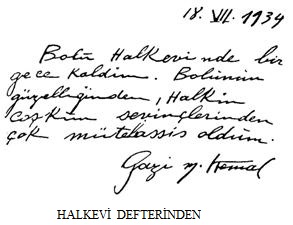 18. VII. 1934
Bolu Halkevi'nde bir
gece kaldım. Bolunun
güzelliğinden, Halkın
coşkun sevinçlerinden
çok mütehassis oldum.
Gazi M. Kemal
HALKEVİ DEFTERİNDEN